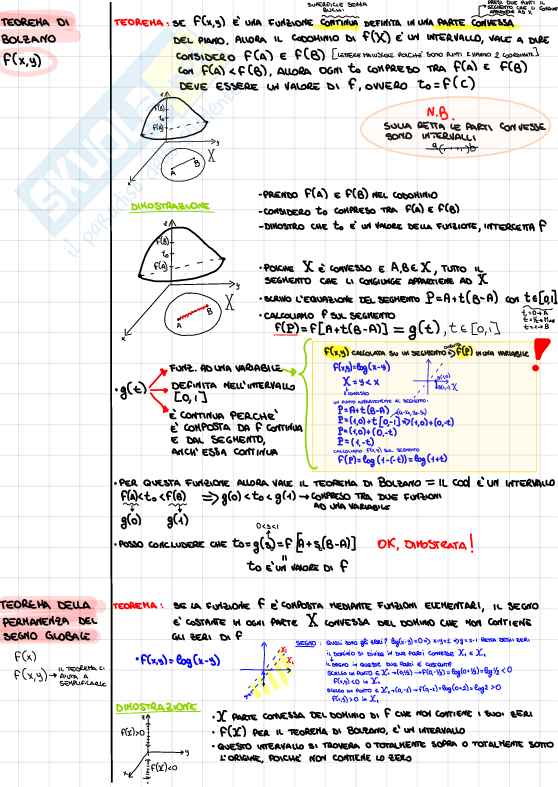 TEOREMA DI
BOLZANO
f(x,y)
SUPERFICIE SENZA
BUCHI
PRESI DUE PUNTI IL
SEGMENTO CHE LI CONGIUNGE
APPARTIENE AD X
TEOREMA: SE f(x,y) È UNA FUNZIONE CONTINUA DEFINITA IN UNA PARTE CONVESSA
DEL PIANO, ALLORA IL CODOMINIO DI f(X) È UN INTERVALLO, VALE A DIRE
CONSIDERO f(A) E f(B) [LETTERE MAIUSCOLE POICHÈ SONO PUNTI E HANNO 2 COORDINATE]
CON f(A)<f(B), ALLORA OGNI to COMPRESO TRA f(A) E f(B)
DEVE ESSERE UN VALORE DI f, OVVERO to=f(C)
N.B.
SULLA RETTA LE PARTI CONVESSE
SONO INTERVALLI
a b
z
f(A)
to
f(B)
y
A
B
X
x
DIMOSTRAZIONE
• PRENDO f(A) E f(B) NEL CODOMINIO
• CONSIDERO to COMPRESO TRA f(A) E f(B)
• DIMOSTRO CHE to È UN VALORE DELLA FUNZIONE, INTERCETTA f
z
f(B)
to
f(A)
y
A
B
X
x
• POICHÈ X È CONVESSO E A,B∈X, TUTTO IL
SEGMENTO CHE LI CONGIUNGE APPARTIENE AD X
• SCRIVO L'EQUAZIONE DEL SEGMENTO P=A+t(B-A) CON t∈[0,1]
t=0→A
t=1→B
• CALCOLIAMO f SUL SEGMENTO
f(P)=f[A+t(B-A)] = g(t), t∈[0,1]
• g(t)
FUNZ. AD UNA VARIABILE
DEFINITA NELL'INTERVALLO
[0,1]
È CONTINUA PERCHÈ
È COMPOSTA DA f CONTINUA
E DAL SEGMENTO,
ANCH'ESSA CONTINUA
f(x,y) CALCOLATA SU UN SEGMENTO → f(P) IN UNA VARIABILE
f(x,y)=log(x-y)
X = y<x
È CONVESSO
P=A+t(B-A)
P=(1,0)+(0,-t)
P=(1,-t)
CALCOLIAMO f(x,y) SUL SEGMENTO
f(P)=log(1-(-t))=log(1+t)
!
• PER QUESTA FUNZIONE ALLORA VALE IL TEOREMA DI BOLZANO = IL COD È UN INTERVALLO
f(A)<to<f(B) ⇒ g(0)<to<g(1) → COMPRESO TRA DUE FUNZIONI
AD UNA VARIABILE
g(0) g(1)
• POSSO CONCLUDERE CHE to=g(s)=f[A+s(B-A)] OK, DIMOSTRATA!
0<s<1
to È UN VALORE DI f
TEOREMA DELLA
PERMANENZA DEL
SEGNO GLOBALE
f(x)
f(x,y) → IL TEOREMA CI
AIUTA A
SEMPLIFICARE
TEOREMA: SE LA FUNZIONE f È COMPOSTA MEDIANTE FUNZIONI ELEMENTARI, IL SEGNO
È COSTANTE IN OGNI PARTE X CONVESSA DEL DOMINIO CHE NON CONTIENE
GLI ZERI DI f
• f(x,y)=log(x-y)
SEGNO: QUALI SONO GLI ZERI? log(x-y)=0 ⇒ x-y=1 ⇒ y=x-1 RETTA DEGLI ZERI
IL DOMINIO SI DIVIDE IN DUE PARTI CONVESSE X₁ E X₂
IL SEGNO IN QUESTE DUE PARTI È COSTANTE
f(x,y)<0 IN X₁
f(x,y)>0 IN X₂
DIMOSTRAZIONE
z
f(X)>0
y
x
f(X)<0
• X PARTE CONVESSA DEL DOMINIO DI f CHE NON CONTIENE I SUOI ZERI
• f(X) PER IL TEOREMA DI BOLZANO, È UN INTERVALLO
• QUESTO INTERVALLO SI TROVERÀ O TOTALMENTE SOPRA O TOTALMENTE SOTTO
L'ORIGINE, POICHÈ NON CONTIENE LO ZERO